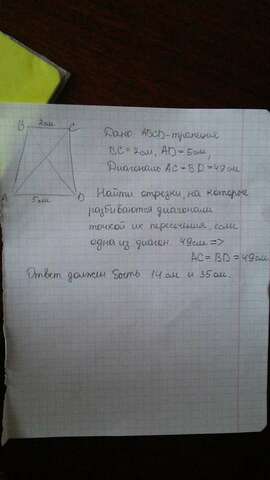 B 2см C
Дано ABCD-трапеция
BC=2см, AD=5см
Диагональ AC=BD=49см
A 5см D
Найти отрезки, на которое
разбиваются диагонали
точкой их пересечения, если
одна из диагон. 49см =>
AC=BD=49см
Ответ должен быть 14см и 35см.